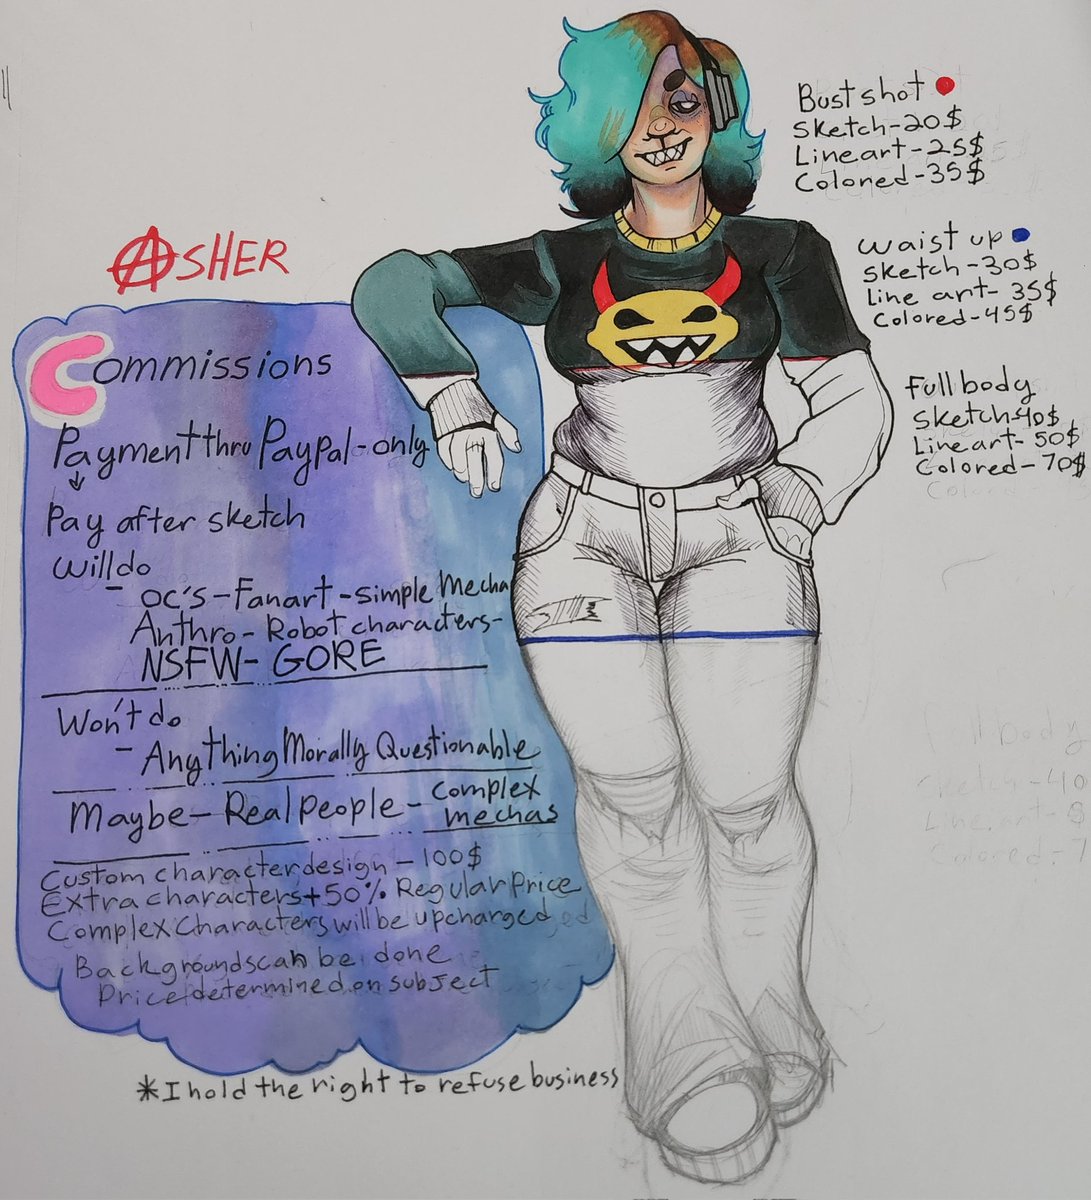 ASHER
Commissions
Payment thru PayPal-only
Pay after sketch
Will do
- OC's-Fanart-simple Mecha
Anthro-Robot characters-
NSFW-GORE
Won't do
- Anything Morally Questionable
Maybe-Real people-complex mechas
Custom character design - 100$
Extra characters +50% Regular Price
Complex Characters will be upcharged
Backgrounds can be done
Price determined on subject
*I hold the right to refuse business
Bust shot
Sketch-20$
Line art-25$
Colored-35$
Waist up
Sketch-30$
Line art-35$
Colored-45$
Full body
Sketch-40$
Line art-50$
Colored-70$
Full body
Sketch-40
Line art-
Colored-7